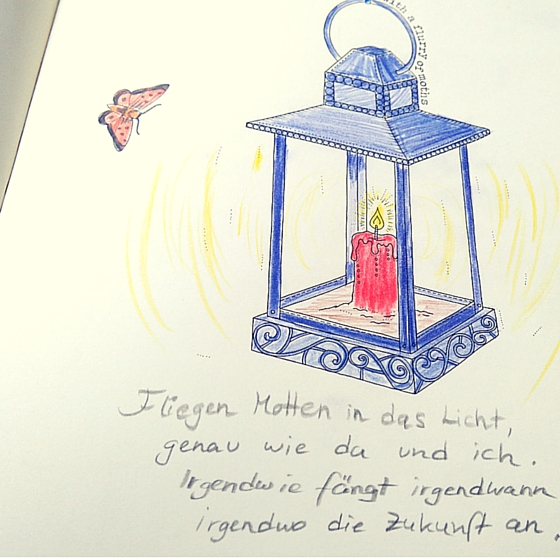 with a flurry of moths
Fliegen Motten in das Licht,
genau wie da und ich.
Irgendwie fängt irgendwann
irgendwo die Zukunft an.